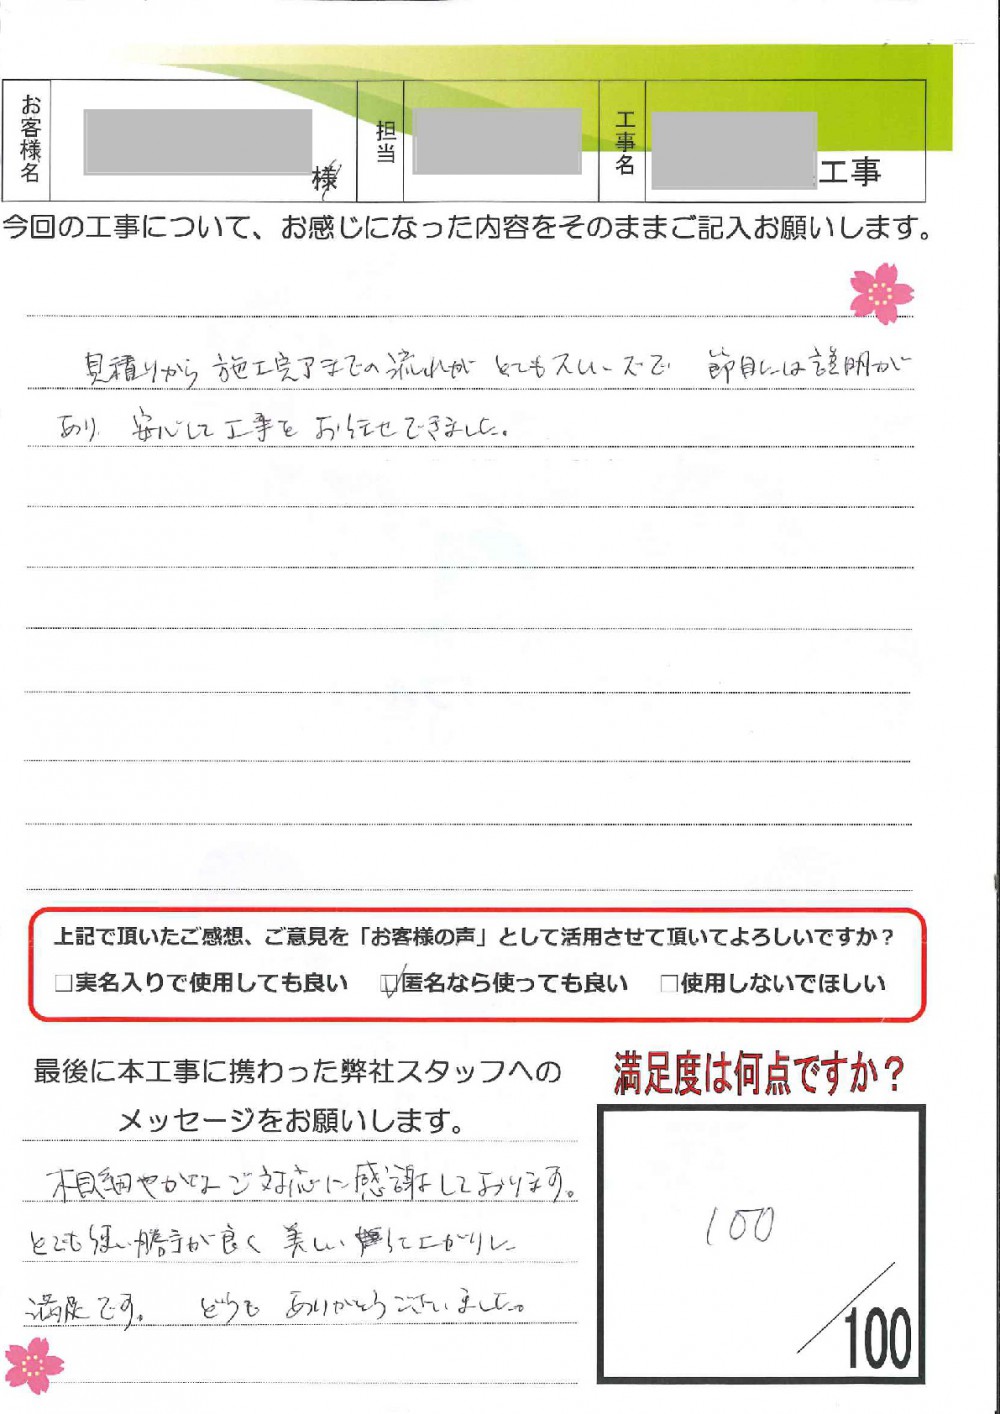 お客様名
様
担当
工事名
工事
今回の工事について、お感じになった内容をそのままご記入お願いします。
見積りから 施工完了までの流れが とてもスムーズで 節目には説明が
あり 安心して工事を お任せできました。
上記で頂いたご感想、ご意見を「お客様の声」として活用させて頂いてよろしいですか？
□実名入りで使用しても良い ☑匿名なら使っても良い □使用しないでほしい
最後に本工事に携わった弊社スタッフへの
メッセージをお願いします。
木目細やかなご対応に感謝しております。
とても使い勝手が良く 美しい 仕上がりに
満足です。 どうも ありがとうございました。
満足度は何点ですか？
100
/100